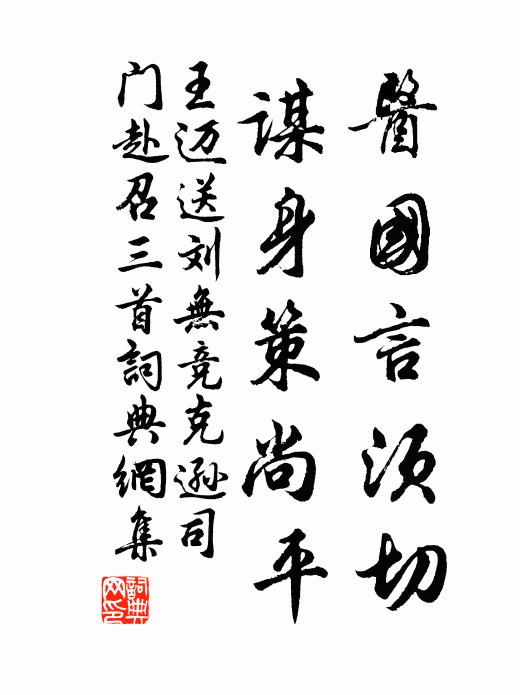 醫國言須切
謀身策尚平
王迈送刘無竞克遜司
门赴召三首詞典網集
詞典网印